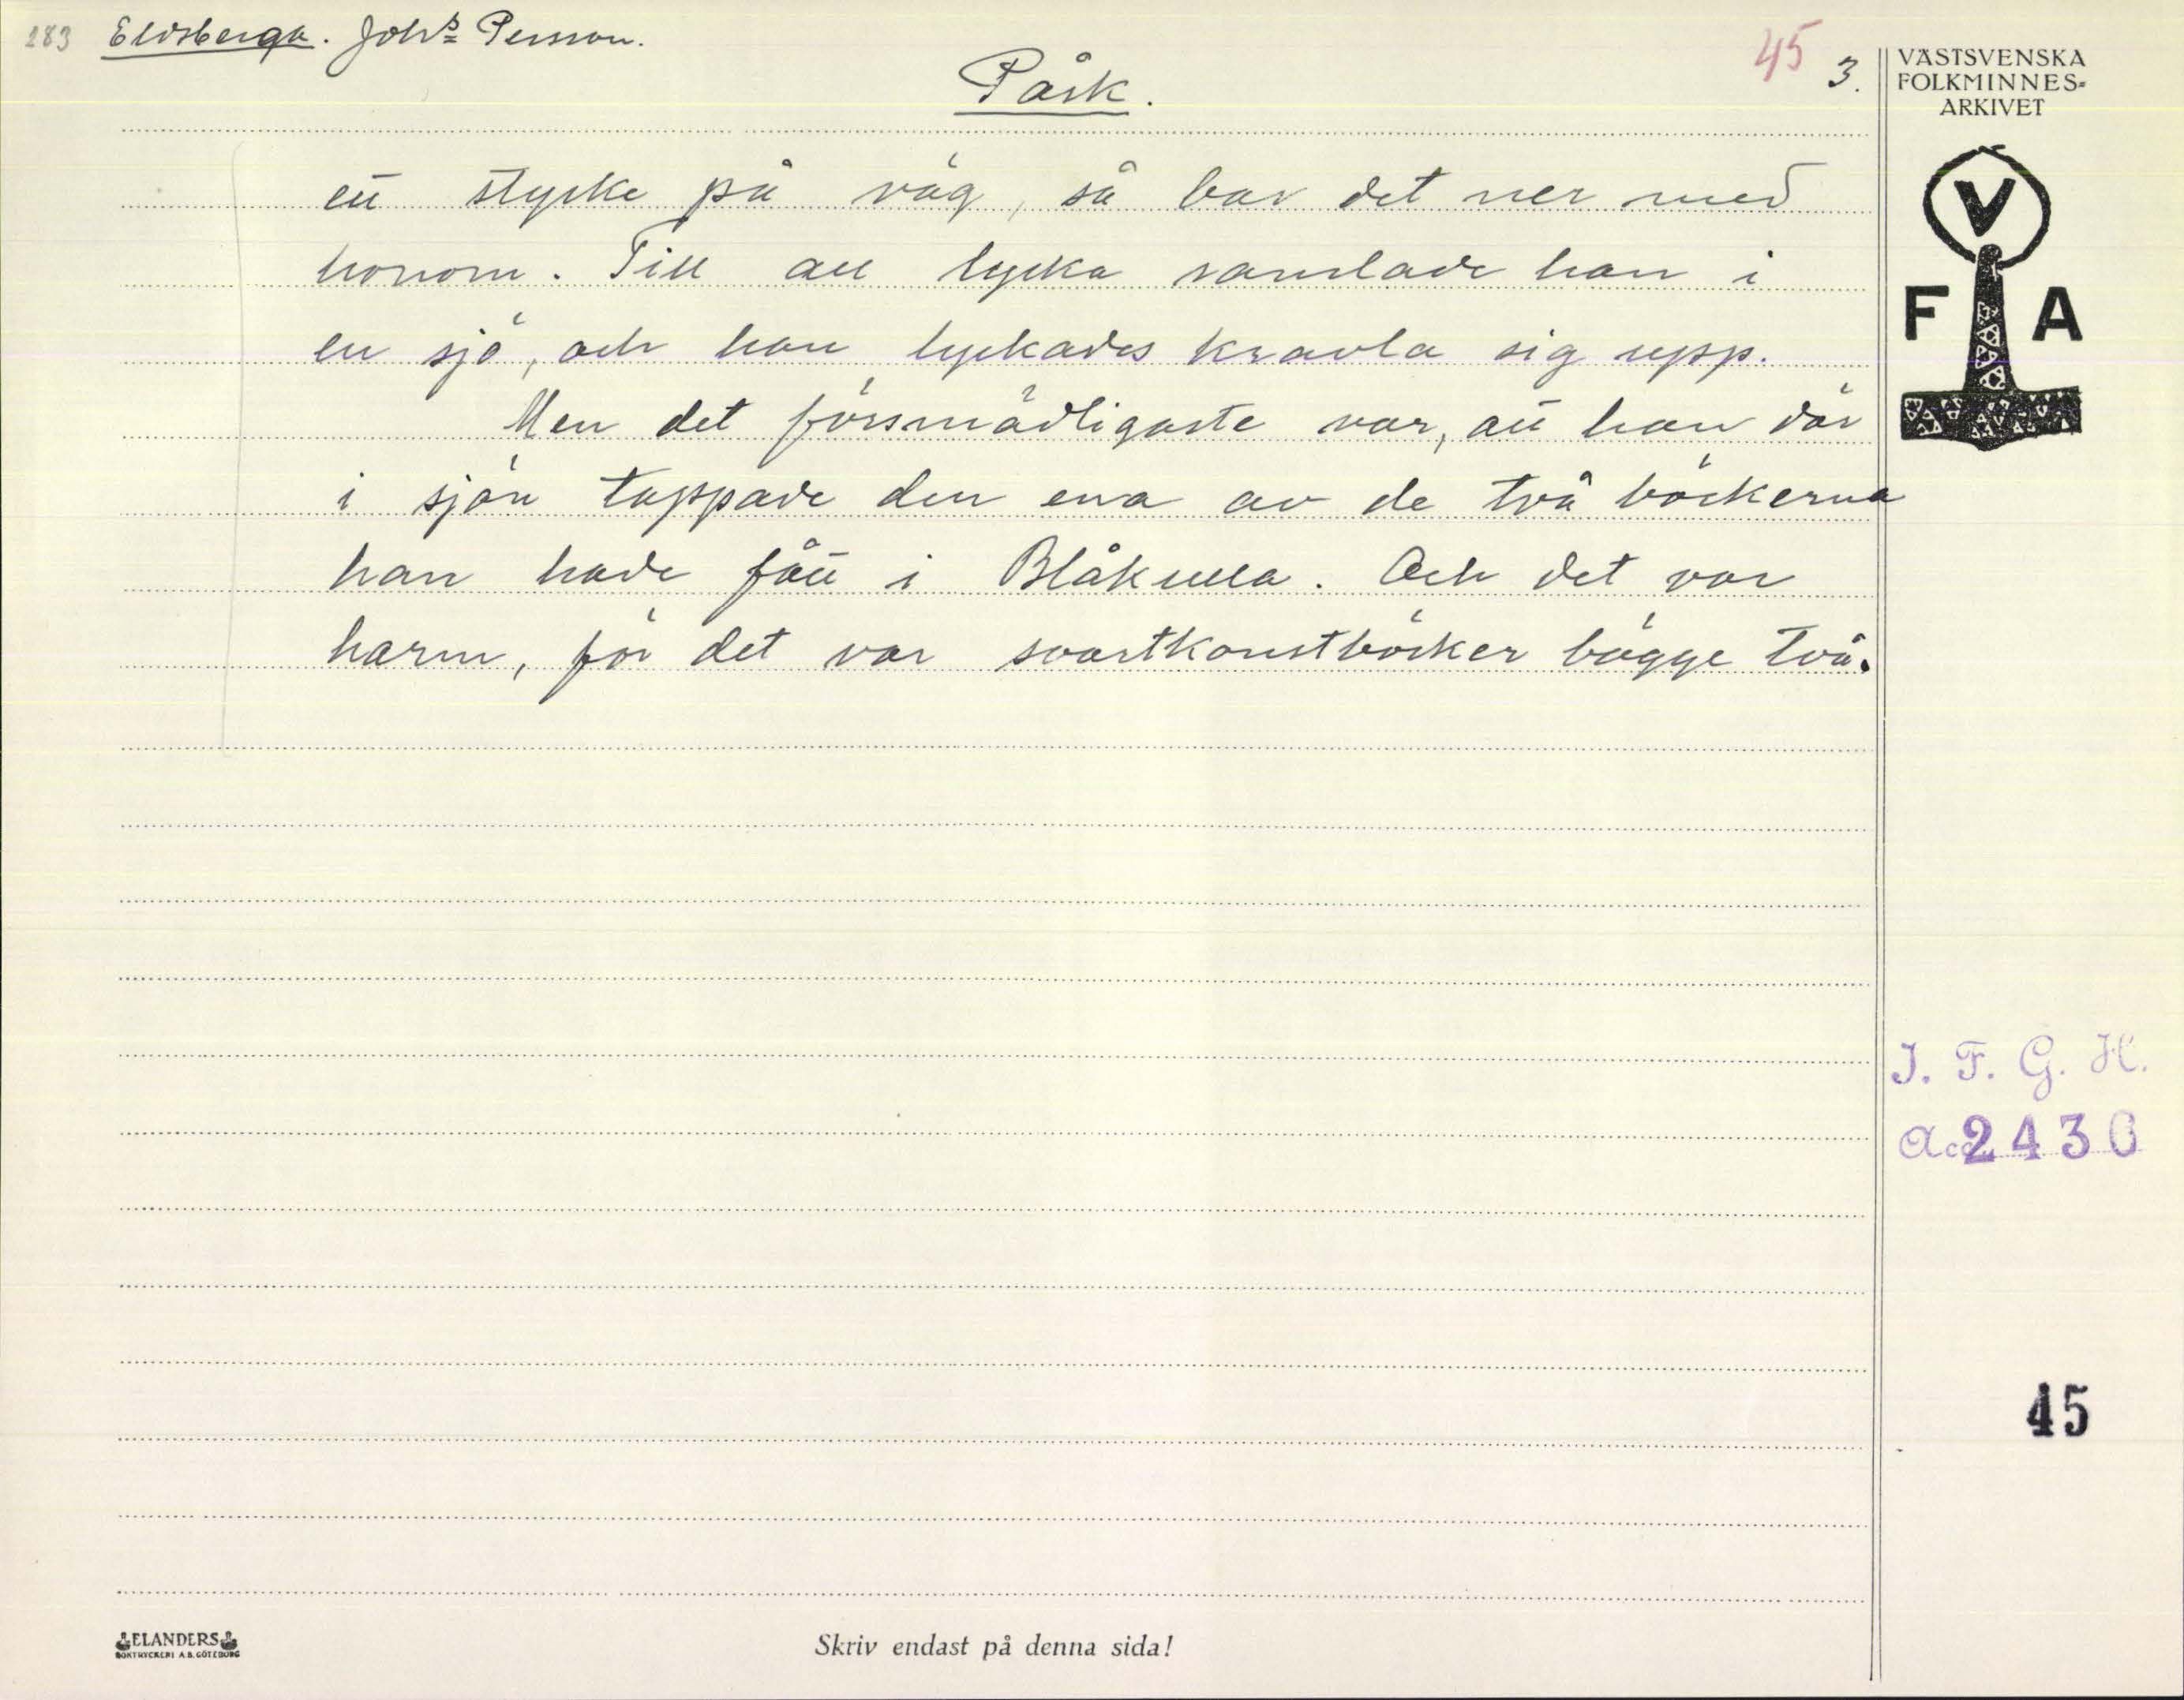 283 Eldsberga. Johs Persson.
45 3.
Påsk.
ett stycke på väg, så bar det ner med
honom. Till all lycka ramlade han i
en sjö, och han lyckades kravla sig upp.
Men det försmädligaste var, att han där
i sjön tappade den ena av de två böckerna
han hade fått i Blåkulla. Och det var
harm, för det var svartkonstböcker bägge två.
VÄSTSVENSKA
FOLKMINNES-
ARKIVET
V
F A
I. F. G. H.
Acc 2430
45
ELANDERS
BOKTRYCKERI A.B. GÖTEBORG
Skriv endast på denna sida!